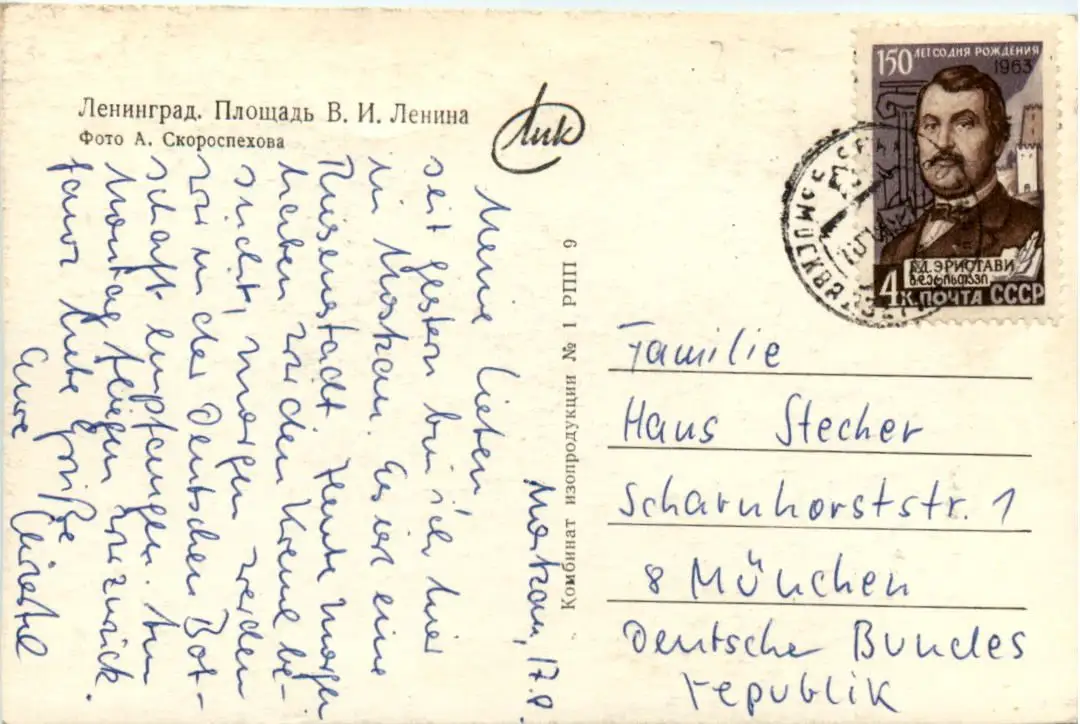 Ленинград. Площадь В. И. Ленина
Фото А. Скороспехова
Лик
Moskau, 17.
Meine Lieben!
seit gestern bin ich hier
in Moskau. Es ist eine
Riesenstadt. Heute morgen
haben wir den Kreml be-
sucht, morgen werden
wir in der Deutschen Bot-
schaft empfangen. Am
Montag fliegen wir zurück.
Ganz liebe Grüße
Eure Christel
Комбинат изопродукции № 1 РПП 9
150 ЛЕТ СО ДНЯ РОЖДЕНИЯ
1963
Г.Д. ЭРИСТАВИ
გ.დ.ერისთავი
4 К. ПОЧТА СССР
МОСКВА
Familie
Hans Stecher
Scharnhorststr. 1
8 München
Deutsche Bundes
republik